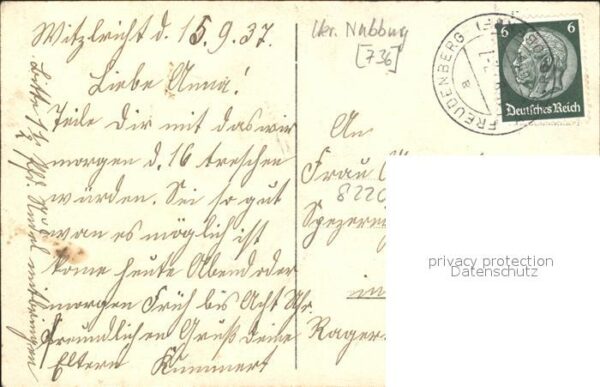 Witzlricht d. 15.9.37.
Liebe Anna!
Teile Dir mit das wir
morgen d. 16 treschen
würden. Sei so gut
wan es möglich ist
kome heute Abend oder
morgen Früh bis Acht Uhr
freundlichen Gruß deine
Eltern Kummert
Bitte 1½ Pfd. Nudel mitbringen
Nabburg
[736]
FREUDENBERG
6 6
Deutsches Reich
An
Frau
822
Spezerei
in
Rager
privacy protection
Datenschutz